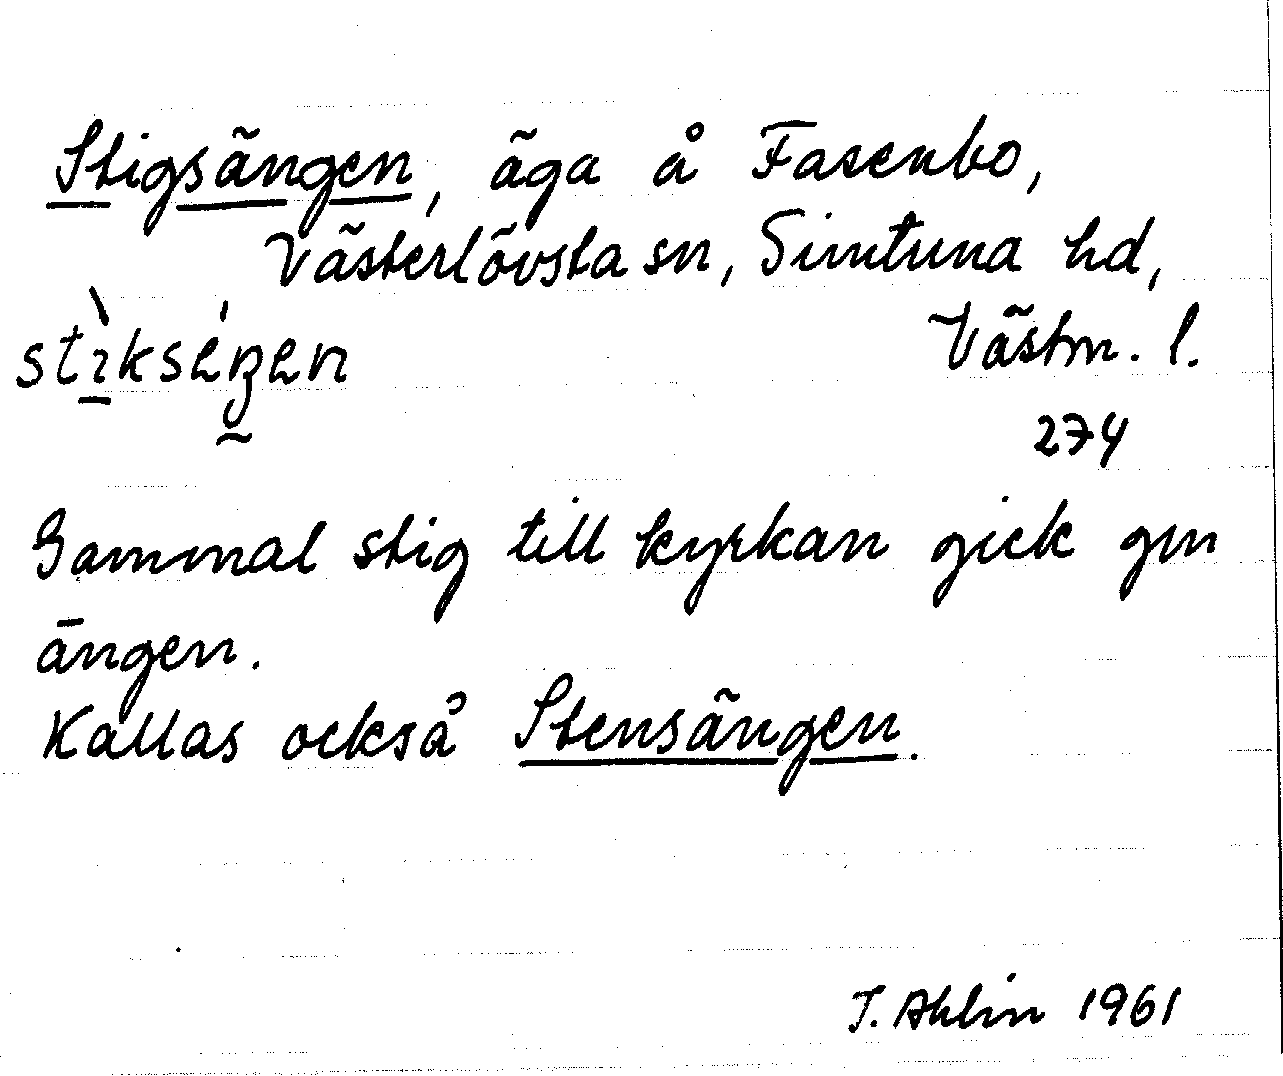 Stigsängen, äga å Fasenbo,
Västerlövsta sn, Simtuna hd,
Västm. l.
274
Gammal stig till kyrkan gick gm
ängen.
Kallas också Stensängen.
T. Ahlin 1961